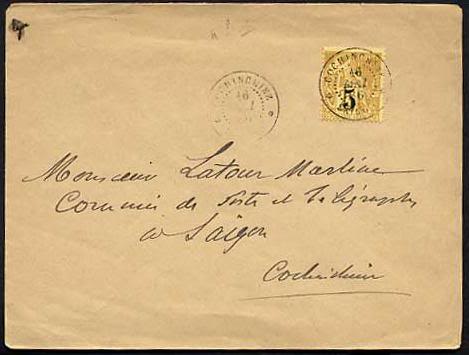 COCHINCHINE
16
COCHINCHINE
16
5
Monsieur Latour Marliac
Commis de Postes et Télégraphes
à Saïgon
Cochinchine